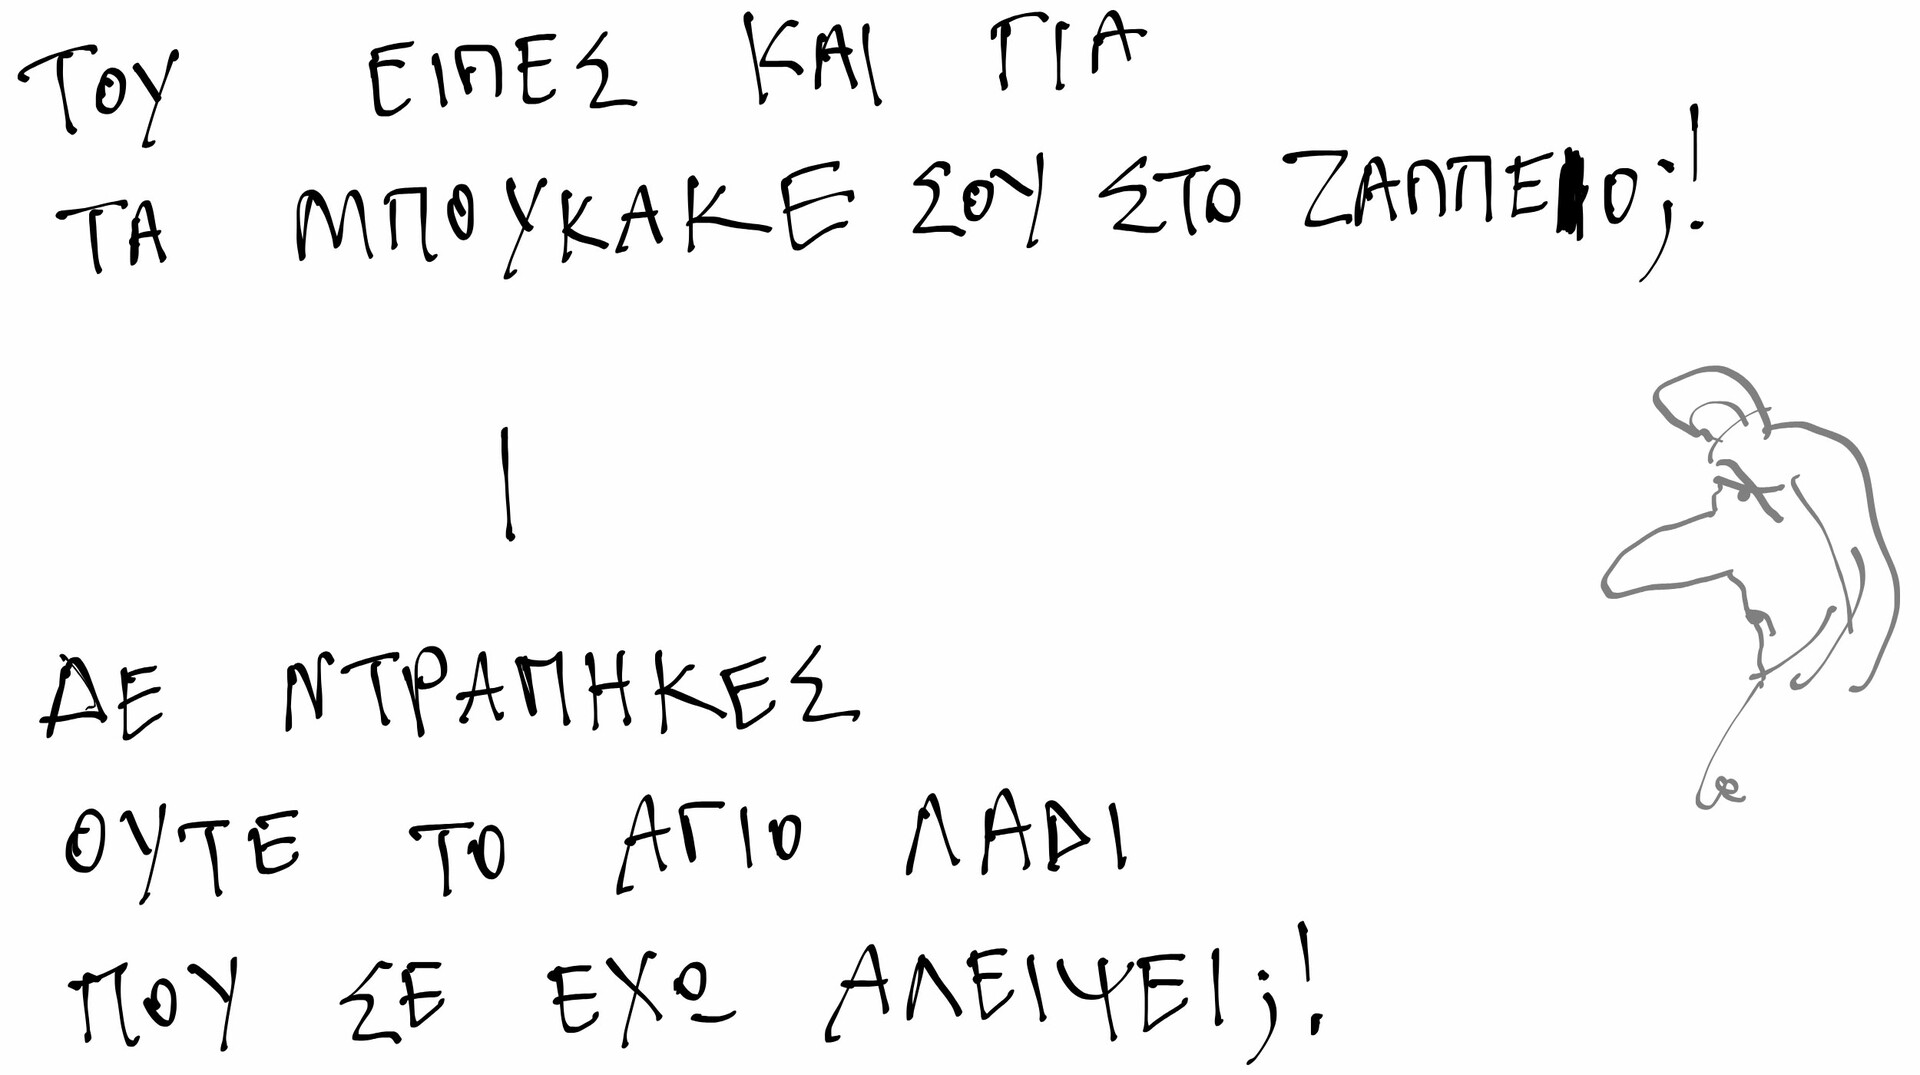 ΤΟΥ ΕΙΠΕΣ ΚΑΙ ΓΙΑ
ΤΑ ΜΠΟΥΚΑΚΕ ΣΟΥ ΣΤΟ ΖΑΠΠΕΙΟ;!
ΔΕ ΝΤΡΑΠΗΚΕΣ
ΟΥΤΕ ΤΟ ΑΓΙΟ ΛΑΔΙ
ΠΟΥ ΣΕ ΕΧΩ ΑΛΕΙΨΕΙ;!